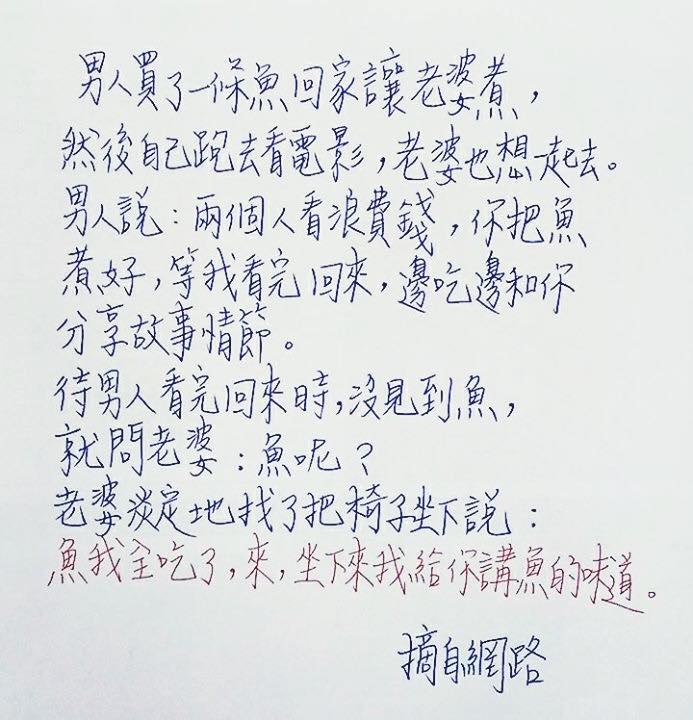 男人買了一條魚回家讓老婆煮，
然後自己跑去看電影，老婆也想一起去。
男人說：兩個人看浪費錢，你把魚
煮好，等我看完回來，邊吃邊和你
分享故事情節。
待男人看完回來時，沒見到魚，
就問老婆：魚呢？
老婆淡定地找了把椅子坐下說：
魚我全吃了，來，坐下來我給你講魚的味道。
摘自網路